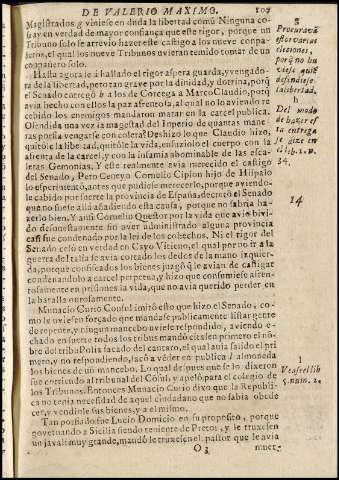 DE VALERIO MAXIMO. 107
Magistrados, y viniese en duda la libertad comũ Ninguna co
sa ay en verdad de mayor confiança que este rigor, porque un
Tribuno solo se atrevio hazer este castigo a los nueve compa
ñeros, el qual los nueve Tribunos uvieran temido tomar de un
conpañero solo.
Hasta agora se á hallado el rigor aspera guarda, y vengado
ra de la libertad, pero tan grave por la dinidad, y dotrina, porq̃
el Senado entregó à los de Corcega a Marco Claudio, porq̃
avia hecho con ellos la paz afrentosa, al qual no lo aviendo re
cebido los enemigos mandaron matar en la carcel publica.
Ofendida una vez la magestad del Imperio de quantas mane
ras porfia vengarse con colera? Deshizo lo que Claudio hizo,
quitóle la libertad, quitóle la vida, ensuziolo el cuerpo con la
afrenta de la carcel, y con la infamia abominable de las esca
leras Gemonias, Y este realmente avia merecido el castigo
del Senado, Pero Geneyo Cornelio Cipion hijo de Hispalo
lo esperimentó, antes que pudiese merecerlo, porque aviendo
le cabido por suerte la provincia de España, decretó el Senado
que no fuese allá añadiendo esta causa, porque no sabria ha-
zerlo bien. Y ansi Cornelio Questor por la vida que avia bivi-
do desonestamente sin aver administrado alguna provincia
casi fue condenado por la lei de los cohechos. Ni el rigor del
Senado cesó en verdad en Cayo Vitieno, el qual por no ir a la
guerra de Italia se avia cortado los dedos de la mano izquier
da, porque confiscados los bienes juzgò q̃ le avian de castigar
condenandolo à carcel perpetua, y hizo que consumiese afren-
tosamente en prisiones la vida, que no avia querido perder en
la batalla onrosamente.
Munacio Curio Consul imitó esto que hizo el Senado, co-
mo le uviesen forçado que mandase publicamente listar gente
de repente, y ningun mancebo uviese respondido, aviendo e-
chado en suerte todos los tribus mandò citasen primero el nõ-
bre del tribu Polia sacado del cantaro, el qual avia salido el pri
mero, y no respondiendo, sacó a vẽder en publica almoneda
los bienes de un mancebo. Lo qual despues que se lo dixeron
fue corriendo al tribunal del Cõsul, y apeló para el colegio de
los Tribunos. Entonces Munacio Curio dixo que la Republi-
ca no tenia necesidad de aquel ciudadano que no sabia obede
cer, y vendiole sus bienes, y a el mismo.
Tan porfiado fue Lucio Domicio en su proposito, porque
governando a Sicilia siendo teniente de Pretor, y le truxesen
un javali muy grande, mandó le truxesen el pastor que le avia
O 3 muer-
g
Procurava
estorvar las
eleciones,
porq̃ no hu
viese quiẽ
defendiese
la libertad.
h
Del modo
de hazer es
ta entrega
se dize en
34.
14
i
Vease el lib
5. num. 2.